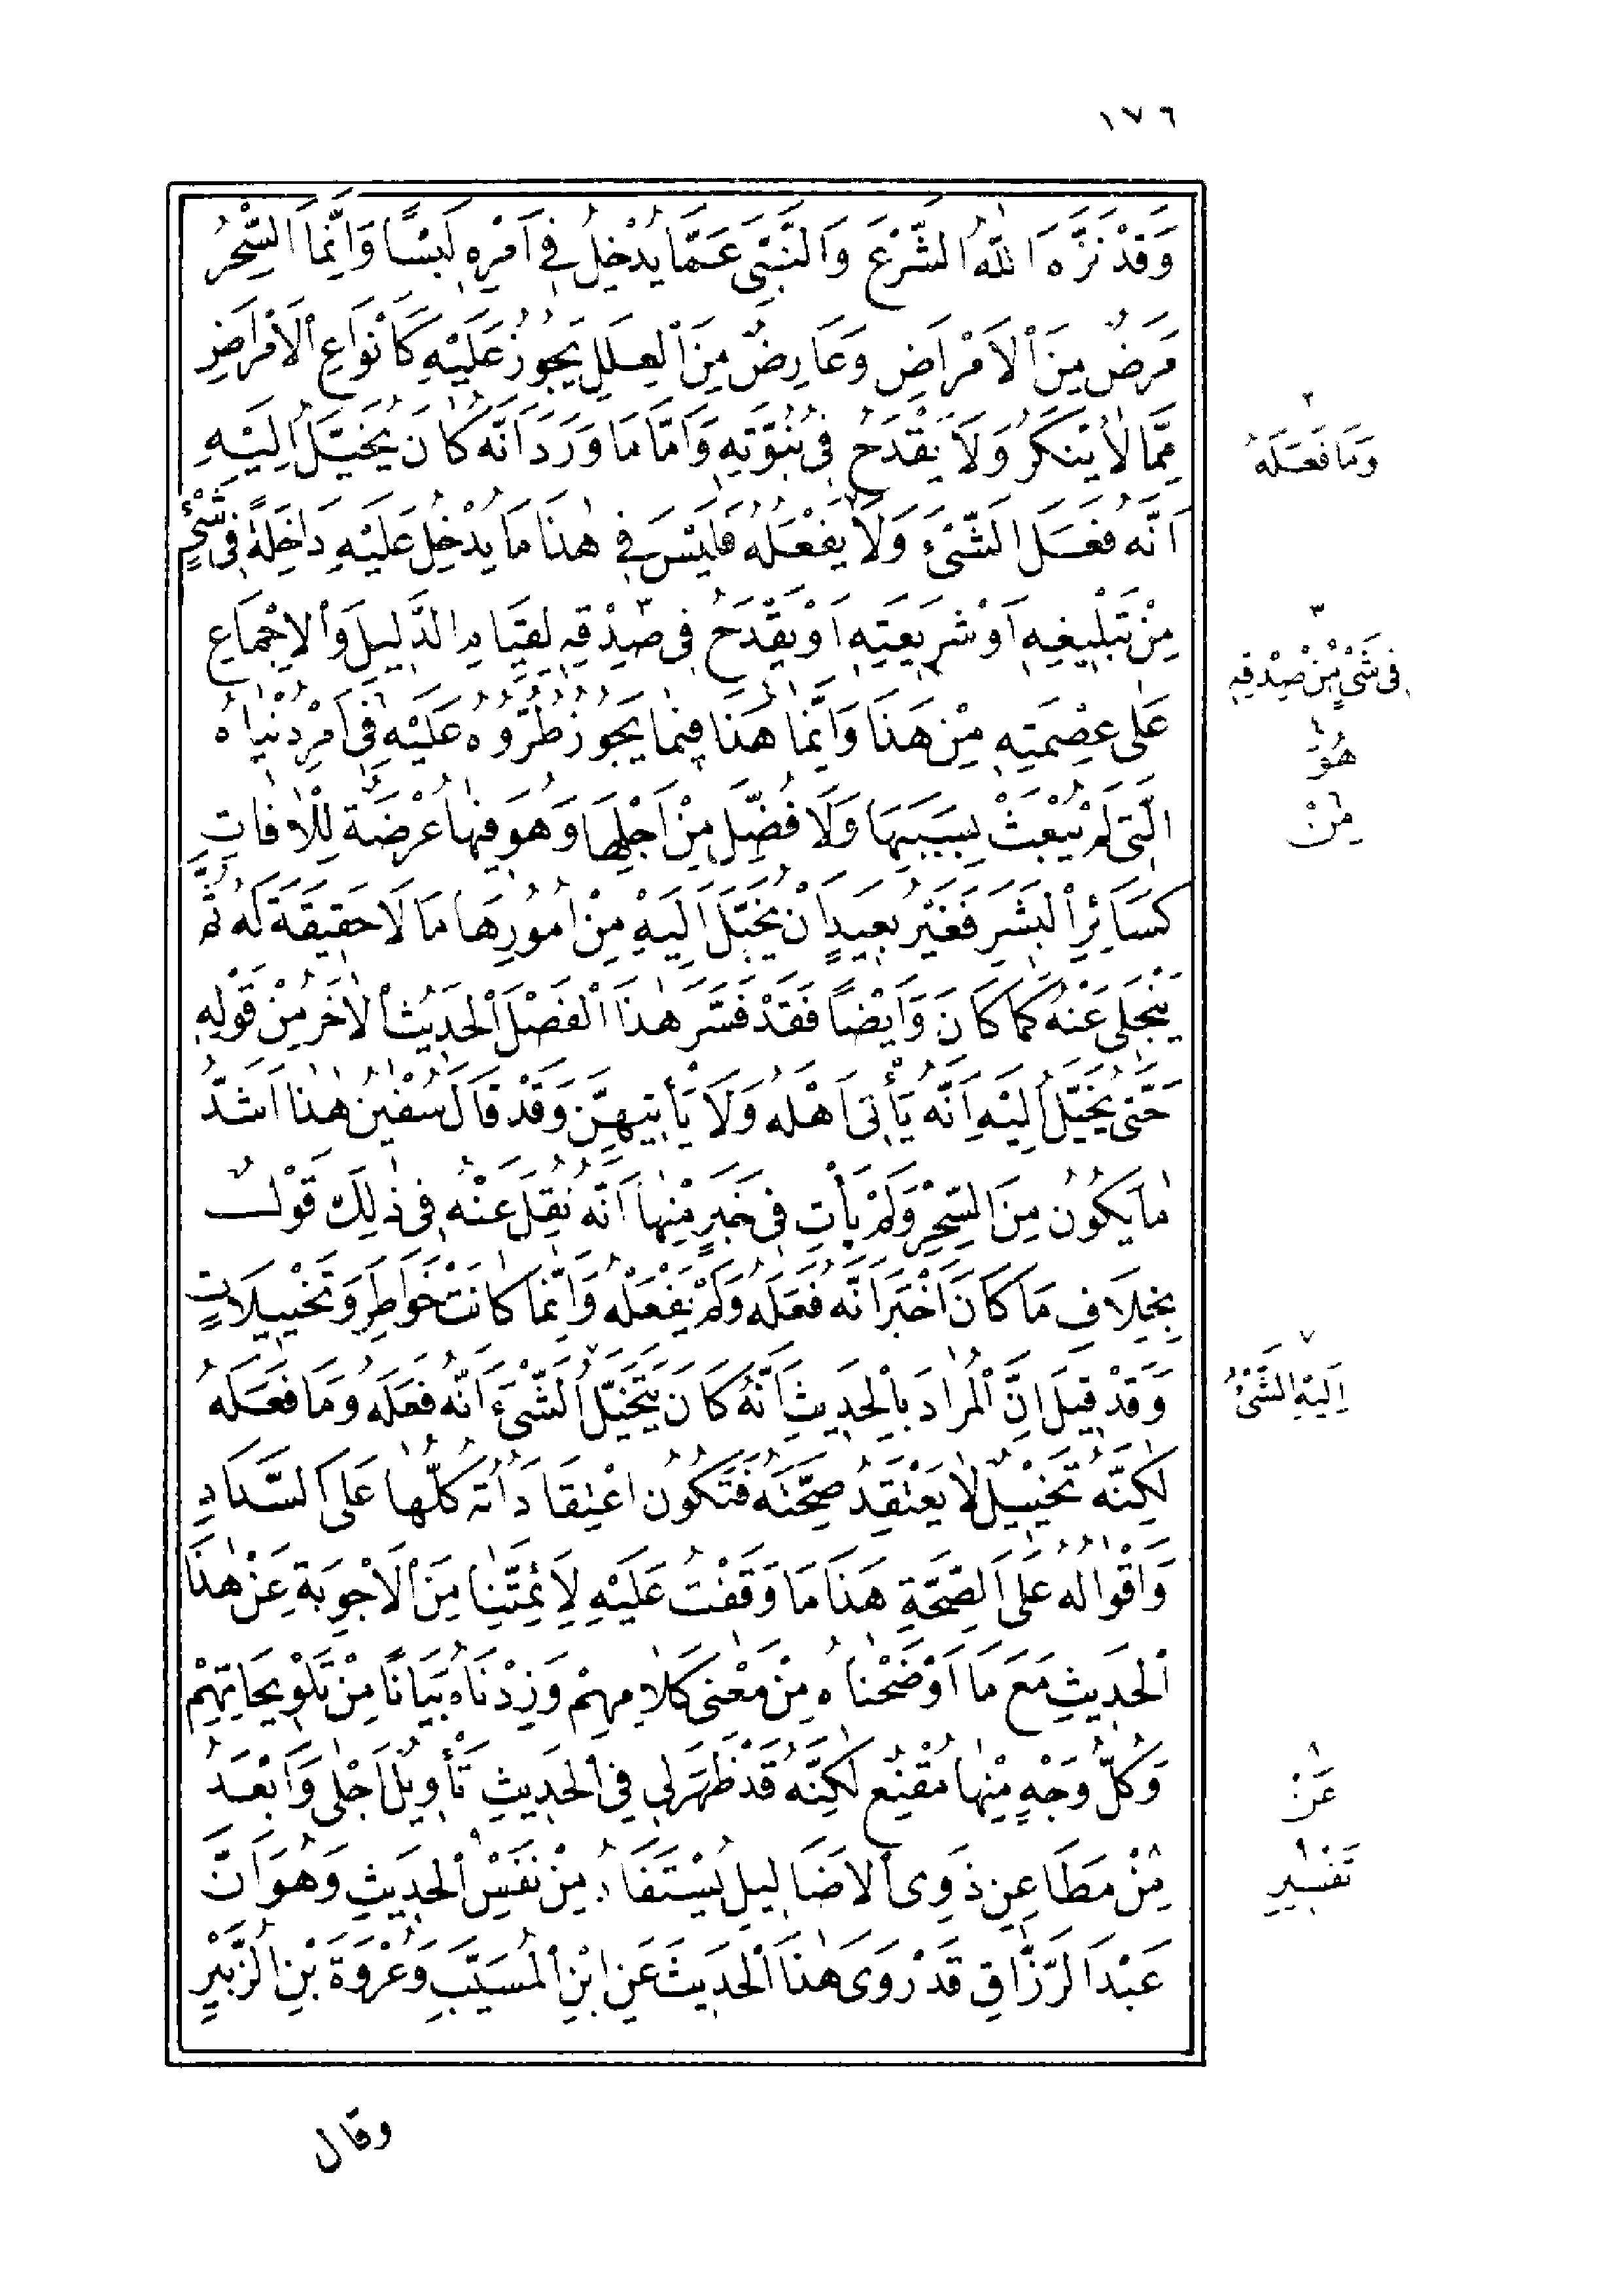 ١٧٦
وَقَدْ نَزَّهَ اللّٰهُ الشَّرْعَ وَالنَّبِيَّ عَمَّا يُدْخِلُ فِي اَمْرِهِ لَبْسًا وَاِنَّمَا السِّحْرُ
مَرَضٌ مِنَ الْاَمْرَاضِ وَعَارِضٌ مِنَ الْعِلَلِ يَجُوزُ عَلَيْهِ كَاَنْوَاعِ الْاَمْرَاضِ
مِمَّا لَا يُنْكَرُ وَلَا يَقْدَحُ فِي نُبُوَّتِهِ وَاَمَّا مَا وَرَدَ اَنَّهُ كَانَ يُخَيَّلُ اِلَيْهِ
اَنَّهُ فَعَلَ الشَّيْءَ وَلَا يَفْعَلُهُ ٢ فَلَيْسَ فِي هٰذَا مَا يُدْخِلُ عَلَيْهِ دَاخِلَةً فِي شَيْءٍ
مِنْ تَبْلِيغِهِ اَوْ شَرِيعَتِهِ اَوْ يَقْدَحُ فِي صِدْقِهِ ٣ لِقِيَامِ الدَّلِيلِ وَالْاِجْمَاعِ
عَلٰى عِصْمَتِهِ مِنْ هَذَا وَاِنَّمَا هٰذَا فِيمَا يَجُوزُ طُرُوُّهُ عَلَيْهِ فِي اَمْرِ دُنْيَاهُ
الَّتِي لَمْ يُبْعَثْ بِسَبَبِهَا وَلَا فُضِّلَ مِنْ اَجْلِهَا وَهُوَ فِيهَا عُرْضَةٌ لِلْاٰفَاتِ
كَسَائِرِ الْبَشَرِ فَغَيْرُ بَعِيدٍ اَنْ يُخَيَّلَ اِلَيْهِ مِنْ اُمُورِهَا مَا لَا حَقِيقَةَ لَهُ ثُمَّ
يَنْجَلِي عَنْهُ كَمَا كَانَ وَاَيْضًا فَقَدْ فَسَّرَ هٰذَا الْفَصْلَ الْحَدِيثُ الْاٰخَرُ مِنْ قَوْلِهِ
حَتّٰى يُخَيَّلَ اِلَيْهِ اَنَّهُ يَأْتِي اَهْلَهُ وَلَا يَأْتِيهِنَّ وَقَدْ قَالَ سُفْيٰنُ هٰذَا اَشَدُّ
مَا يَكُونُ مِنَ السِّحْرِ وَلَمْ يَأْتِ فِي خَبَرٍ مِنْهَا اَنَّهُ نُقِلَ عَنْهُ فِي ذٰلِكَ قَوْلٌ
بِخِلَافِ مَا كَانَ اَخْبَرَ اَنَّهُ فَعَلَهُ وَلَمْ يَفْعَلْهُ وَاِنَّمَا كَانَتْ خَوَاطِرَ وَتَخْيِيلَاتٍ
وَقَدْ قِيلَ اِنَّ الْمُرَادَ بِالْحَدِيثِ اَنَّهُ كَانَ يَتَخَيَّلُ ٧ الشَّيْءَ اَنَّهُ فَعَلَهُ وَمَا فَعَلَهُ
لٰكِنَّهُ تَخْيِيلٌ لَا يَعْتَقِدُ صِحَّتَهُ فَتَكُونُ اعْتِقَادَاتُهُ كُلُّهَا عَلَى السَّدَادِ
وَاَقْوَالُهُ عَلَى الصِّحَّةِ هَذَا مَا وَقَفْتُ عَلَيْهِ لِاَئِمَّتِنَا مِنَ الْاَجْوِبَةِ عَنْ هٰذَا
الْحَدِيثِ مَعَ مَا اَوْضَحْنَاهُ مِنْ مَعْنٰى كَلَامِهِمْ وَزِدْنَاهُ بَيَانًا مِنْ تَلْوِيحَاتِهِمْ
وَكُلُّ وَجْهٍ مِنْهَا مُقْنِعٌ لٰكِنَّهُ قَدْ ظَهَرَ لِي فِي الْحَدِيثِ تَأْوِيلٌ اَجْلٰى وَاَبْعَدُ
مِنْ ٨ مَطَاعِنِ ذَوِي الْاَضَالِيلِ يُسْتَفَادُ مِنْ نَفْسِ ٩ الْحَدِيثِ وَهُوَ اَنَّ
عَبْدَ الرَّزَّاقِ قَدْ رَوَى هٰذَا الْحَدِيثَ عَنِ ابْنِ الْمُسَيَّبِ وَعُرْوَةَ بْنِ الزُّبَيْرِ
٢
وَمَا فَعَلَهُ
٣
فِي شَيْءٍ مِنْ صِدْقِهِ
هُوَ
مِنْ
٧
اِلَيْهِ الشَّيْءُ
٨
عَنْ
٩
تَفْسِيرِ
وقال